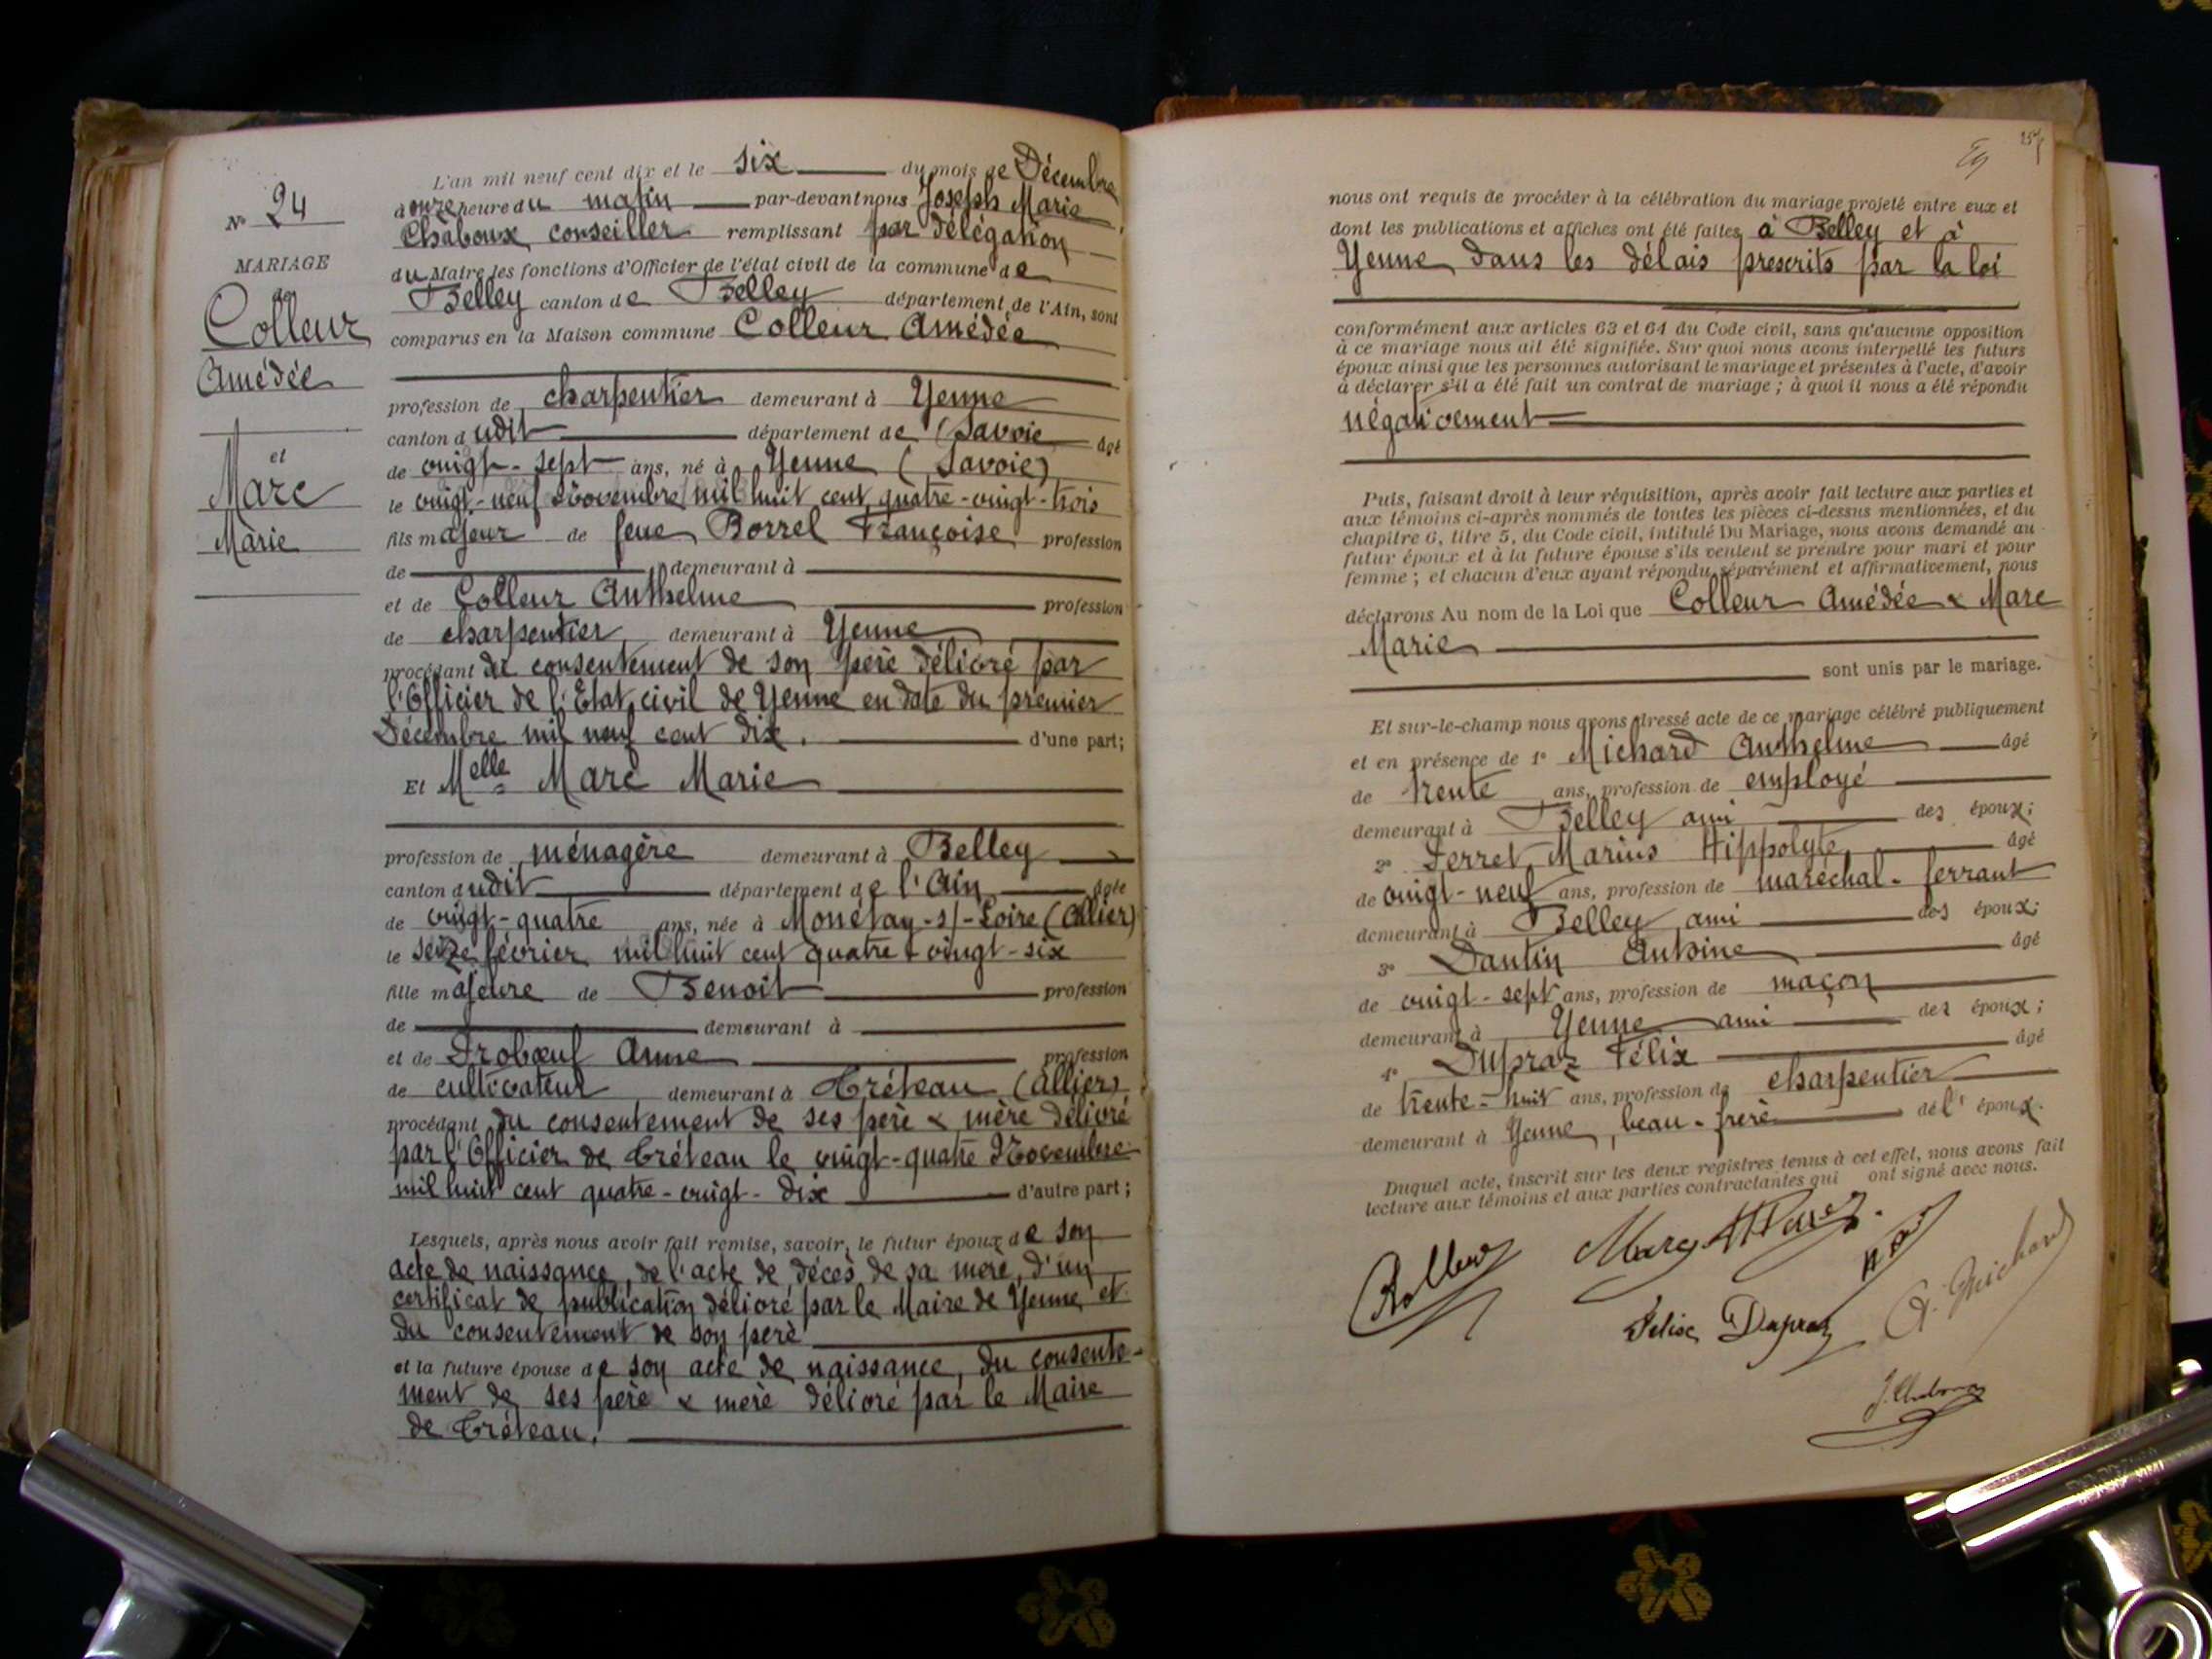 N° 24
MARIAGE
de
Colleur
Amédée
et
Marc
Marie
L'an mil neuf cent dix et le six du mois de Décembre
à onze heure du matin par-devant nous Joseph Marie
Chaboux conseiller remplissant par délégation
du Maire les fonctions d'Officier de l'état civil de la commune de
Belley canton de Belley département de l'Ain, sont
comparus en la Maison commune Colleur Amédée
profession de charpentier demeurant à Yenne
canton dudit département de (Savoie âgé
de vingt-sept ans, né à Yenne (Savoie)
le vingt-neuf Novembre mil huit cent quatre-vingt-trois
fils majeur de feue Borrel Françoise profession
de demeurant à
et de Colleur Anthelme profession
de charpentier demeurant à Yenne
procédant du consentement de son père délivré par
l'Officier de l'Etat civil de Yenne en date du premier
Décembre mil neuf cent dix. d'une part;
Et Melle Marc Marie
profession de ménagère demeurant à Belley
canton dudit département de l'Ain âgée
de vingt-quatre ans, née à Monétay-s/-Loire (Allier)
le seize février mil huit cent quatre vingt-six
fille majeure de Benoit profession
de demeurant à
et de Trobœuf Anne profession
de cultivateur demeurant à Créteau (Allier)
procédant du consentement de ses père & mère délivré
par l'Officier de Créteau le vingt-quatre Novembre
mil huit cent quatre-vingt-dix d'autre part;
Lesquels, après nous avoir fait remise, savoir, le futur époux de son
acte de naissance, de l'acte de décès de sa mère, d'un
certificat de publication délivré par le Maire de Yenne et
du consentement de son père
et la future épouse de son acte de naissance, du consente-
ment de ses père & mère délivré par le Maire
de Créteau.
nous ont requis de procéder à la célébration du mariage projeté entre eux et
dont les publications et affiches ont été faites à Belley et à
Yenne dans les délais prescrits par la loi
conformément aux articles 63 et 64 du Code civil, sans qu'aucune opposition
à ce mariage nous ait été signifiée. Sur quoi nous avons interpellé les futurs
époux ainsi que les personnes autorisant le mariage et présentes à l'acte, d'avoir
à déclarer s'il a été fait un contrat de mariage ; à quoi il nous a été répondu
négativement
Puis, faisant droit à leur réquisition, après avoir fait lecture aux parties et
aux témoins ci-après nommés de toutes les pièces ci-dessus mentionnées, et du
chapitre 6, titre 5, du Code civil, intitulé Du Mariage, nous avons demandé au
futur époux et à la future épouse s'ils veulent se prendre pour mari et pour
femme ; et chacun d'eux ayant répondu séparément et affirmativement, nous
déclarons Au nom de la Loi que Colleur Amédée & Marc
Marie
sont unis par le mariage.
Et sur-le-champ nous avons dressé acte de ce mariage célébré publiquement
et en présence de 1° Michard Anthelme âgé
de trente ans, profession de employé
demeurant à Belley ami des époux;
2° Ferret Marius Hippolyte âgé
de vingt-neuf ans, profession de maréchal-ferrant
demeurant à Belley ami des époux;
3° Dantin Antoine âgé
de vingt-sept ans, profession de maçon
demeurant à Yenne ami des époux;
4° Dupraz Félix âgé
de trente-huit ans, profession de charpentier
demeurant à Yenne, beau-frère de l'époux.
Duquel acte, inscrit sur les deux registres tenus à cet effet, nous avons fait
lecture aux témoins et aux parties contractantes qui ont signé avec nous.
Felix Dupraz
A. Michard